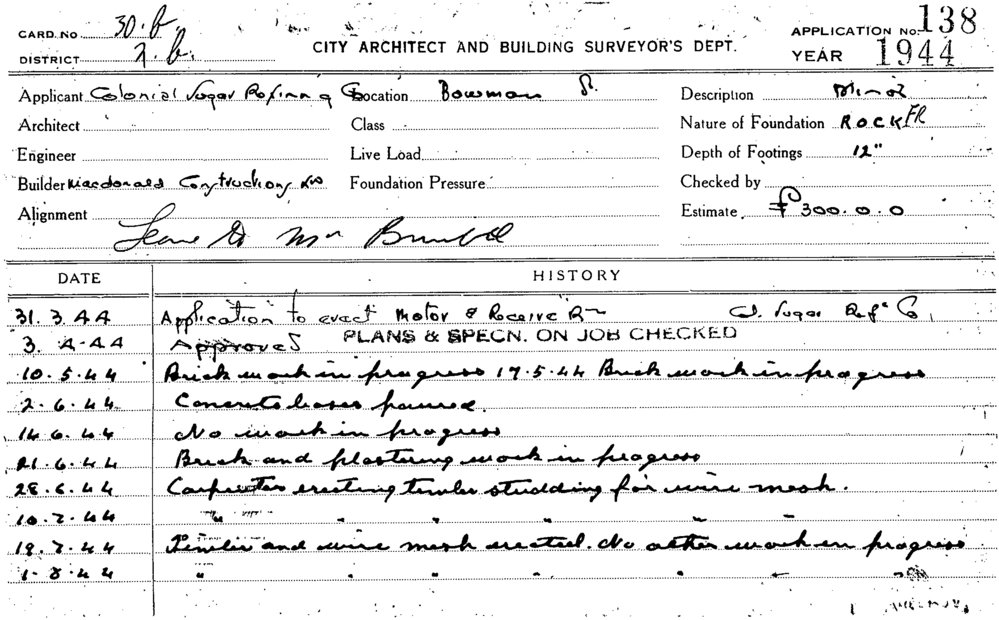 CARD. NO. 30. b
APPLICATION No. 138
DISTRICT 2. b.
CITY ARCHITECT AND BUILDING SURVEYOR'S DEPT.
YEAR 1944
Applicant Colonial Sugar Refining Co Location Bowman St. Description Minor
Architect Class Nature of Foundation ROCK FR
Engineer Live Load Depth of Footings 12"
Builder Macdonald Constructions Foundation Pressure Checked by
Alignment Estimate £300.0.0
DATE HISTORY
31.3.44 Application to erect Motor & Receive Rm Col. Sugar Ref. Co.
3.4.44 Approved PLANS & SPECN. ON JOB CHECKED
10.5.44 Brick work in progress 17.5.44 Brick work in progress
2.6.44 Concrete bases poured.
14.6.44 No work in progress
21.6.44 Brick and plastering work in progress
28.6.44 Carpenter erecting timber studding for wire mesh.
10.7.44 " " " " " "
18.7.44 Timber and wire mesh erected. No other work in progress
1.8.44 " " " " " "